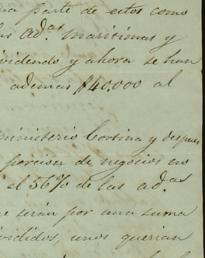 parte de estos como
las ad.as maritimas y
dividendo y ahora se han
ademas $40.000 al
ministerio Cortina y despues
porcion de negocios no
el 56% de las ad.as
serán por una suma
divididos, unos querian